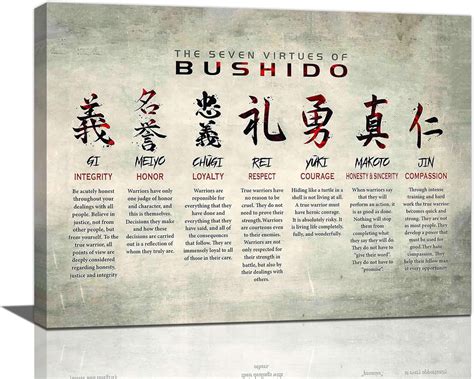 THE SEVEN VIRTUES OF
BUSHIDO
義
GI
INTEGRITY
Be acutely honest
throughout your
dealings with all
people. Believe in
justice, not from
other people, but
from yourself. To the
true warrior, all
points of view are
deeply considered
regarding honesty,
justice and integrity
名誉
MEIYO
HONOR
Warriors have only
one judge of honor
and character, and
this is themselves.
Decisions they make
and how these
decisions are carried
out is a reflection of
whom they truly are.
忠義
CHŪGI
LOYALTY
Warriors are
responsible for
everything that they
have done and
everything that they
have said, and all of
the consequences
that follow. They are
immensely loyal to all
of those in their care.
礼
REI
RESPECT
True warriors have
no reason to be
cruel. They do not
need to prove their
strength. Warriors
are not only
respected for their
strength in battle,
but also by their
dealings with
others.
勇
YŪKI
COURAGE
Hiding like a turtle in a
shell is not living at all.
A true warrior must
have heroic courage.
It is absolutely risky. It
is living life completely,
fully, and wonderfully.
真
MAKOTO
HONESTY & SINCERITY
When warriors say
that they will
perform an action, it
is as good as done.
Nothing will stop
them from
completing what
they say they will do.
They do not have to
"give their word".
They do not have to
"promise"
仁
JIN
COMPASSION
Through intense
training and hard
work the true warrior
becomes quick and
strong. They are not as
most people. They
develop a power that
must be used for
good. They have
compassion. They
help their fellow man
at every opportunity.